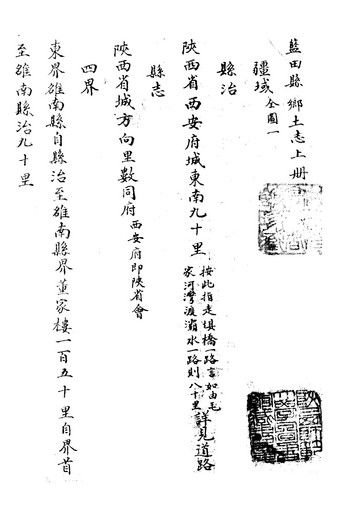 藍田縣鄉土志上册
疆域 全圖一
縣治
陝西省西安府城東南九十里 按此指走埧橋一路言如由毛家河灣渡灞水一路則八十里詳見道路
縣志
陝西省城方向里數同府 西安府即陝省會
四界
東界雒南縣自縣治至雒南縣界董家樓一百五十里自界首
至雒南縣治九十里